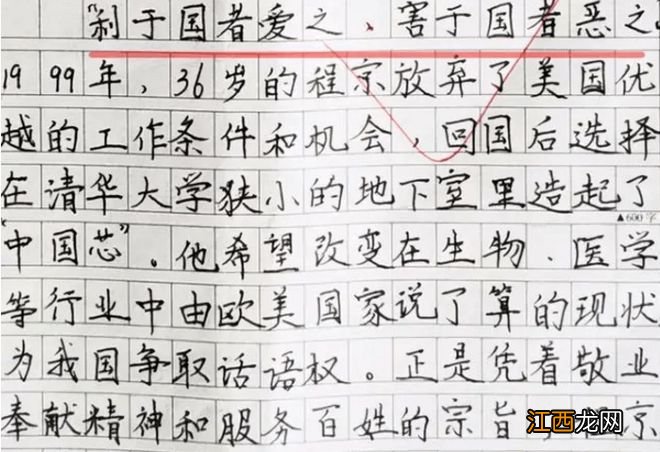 "利于国者爱之、害于国者恶之。
1999年，36岁的程京放弃了美国优
越的工作条件和机会，回国后选择
在清华大学狭小的地下室里造起了
▲600字
"中国芯"。他希望改变在生物、医学
等行业中由欧美国家说了算的现状
为我国争取话语权。正是凭着敬业
奉献精神和服务百姓的宗旨 京
江西龙网